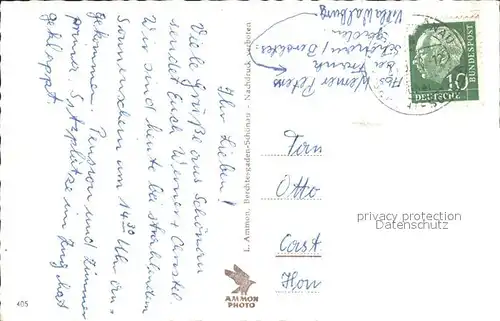 Ihr Lieben!
Viele Grüße aus Schönau
sendet Euch Werner + Christel.
Wir sind heute bei strahlendem
Sonnenschein um 14³⁰ Uhr an-
gekommen. Pension und Zimmer
prima. Sitzplätze im Zug hat
geklappt.
Abs. Werner Peters
bei Frank
Schönau / Berchtes-
gaden
Villa Waldburg
DEUTSCHE
BUNDESPOST
10
L. Ammon, Berchtesgaden-Schönau · Nachdruck verboten
Otto
privacy protection
DarumRO.com
AMMON
PHOTO
405